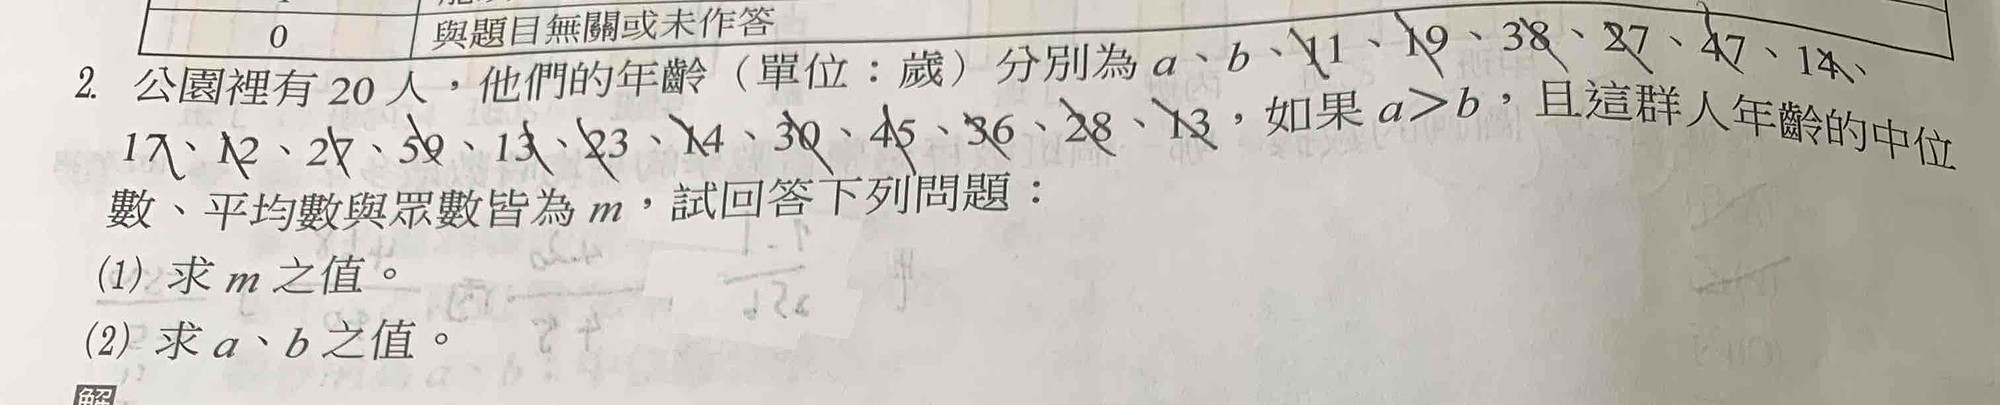 0 與題目無關或未作答
2. 公園裡有 20 人，他們的年齡（單位：歲）分別為 a、b、11、19、38、27、47、14、
17、12、27、59、13、23、14、30、45、36、28、13，如果 a＞b，且這群人年齡的中位
數、平均數與眾數皆為 m，試回答下列問題：
(1) 求 m 之值。
(2) 求 a、b 之值。
解